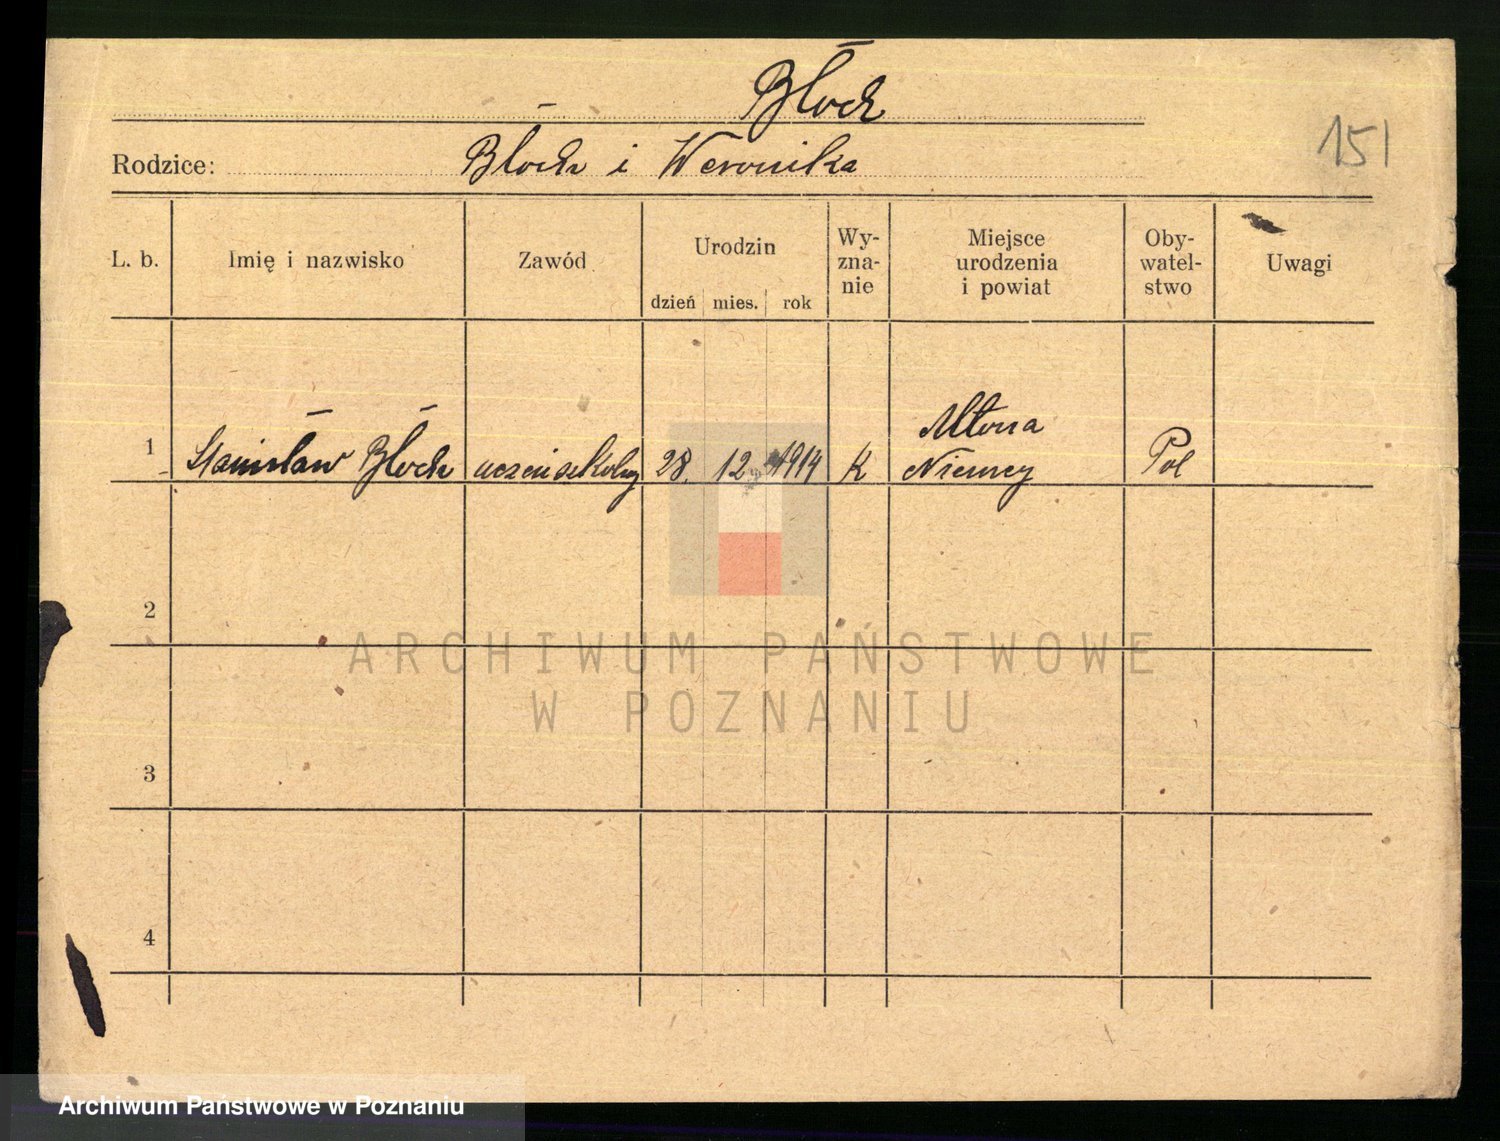 Błock
Rodzice: Błock i Weronika
151
L. b. Imię i nazwisko Zawód Urodzin dzień mies. rok Wy-zna-nie Miejsce urodzenia i powiat Oby-watel-stwo Uwagi
1 Stanisław Błock uczeń szkolny 28. 12. 1914 K Altona Niemcy Pol
2
3
4
ARCHIWUM PAŃSTWOWE
W POZNANIU
Archiwum Państwowe w Poznaniu